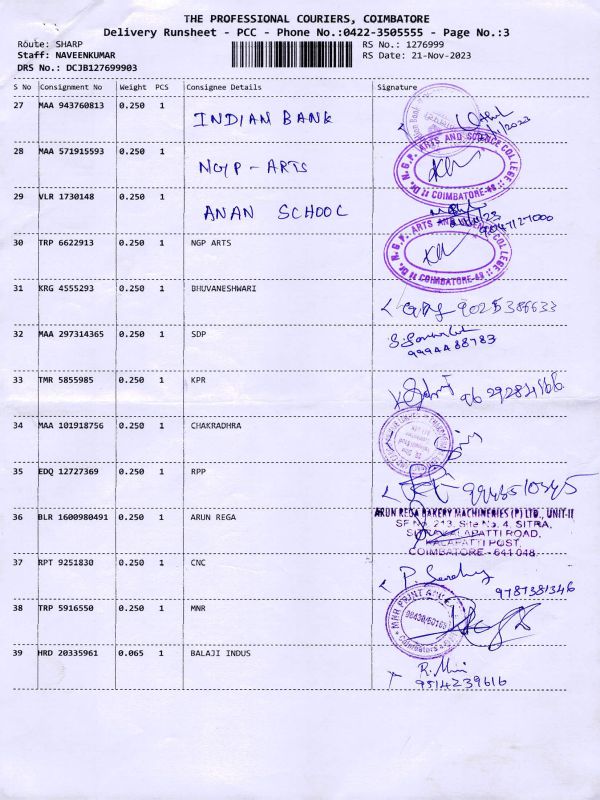 THE PROFESSIONAL COURIERS, COIMBATORE
Delivery Runsheet - PCC - Phone No.:0422-3505555 - Page No.:3
Route: SHARP
Staff: NAVEENKUMAR
DRS No.: DCJB127699903
RS No.: 1276999
RS Date: 21-Nov-2023
S No Consignment No Weight PCS Consignee Details Signature
27 MAA 943760813 0.250 1 INDIAN BANK
28 MAA 571915593 0.250 1 NGP - ARTS
Dr. N.G.P. ARTS AND SCIENCE COLLEGE
COIMBATORE-48
29 VLR 1730148 0.250 1 ANAN SCHOOL
30 TRP 6622913 0.250 1 NGP ARTS
Dr. N.G.P. ARTS AND SCIENCE COLLEGE
COIMBATORE-48
31 KRG 4555293 0.250 1 BHUVANESHWARI
32 MAA 297314365 0.250 1 SDP
33 TMR 5855985 0.250 1 KPR
34 MAA 101918756 0.250 1 CHAKRADHRA
35 EDQ 12727369 0.250 1 RPP
36 BLR 1600980491 0.250 1 ARUN REGA
ARUN REGA BAKERY MACHINERIES (P) LTD., UNIT-II
SF No. 213, Site No. 4, SITRA,
KALAPATTI POST,
COIMBATORE - 641 048
37 RPT 9251830 0.250 1 CNC
9787381346
38 TRP 5916550 0.250 1 MNR
39 HRD 20335961 0.065 1 BALAJI INDUS
9514239616